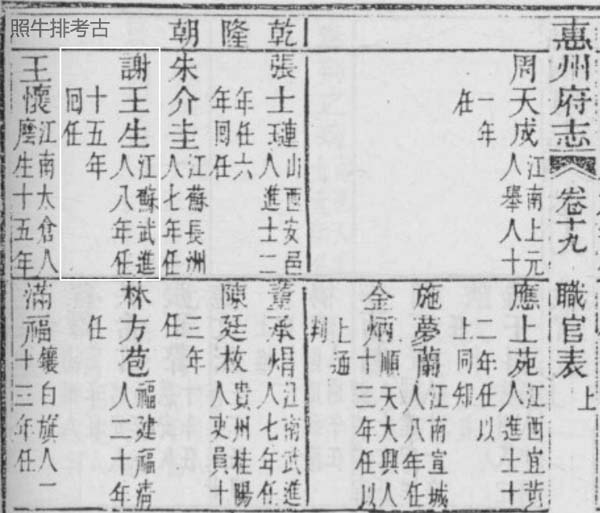 照牛排考古
惠州府志 卷十九 職官表 上
周天成 江南上元人舉人十一年任
乾隆朝
張士璉 山西安邑人進士二年任六年回任
朱介圭 江蘇長洲人七年任
謝王生 江蘇武進人八年任十五年回任
王懷 江南太倉人
生十五年
應上苑 江西宜黃人進士十二年任以上同知
施夢蘭 江南宣城人八年任
金炳 順天大興人十三年任以上通判
董承焆 江南武進人七年任
陳廷枚 貴州桂陽人吏員十二年任
林方苞 福建福清人二十年任
滿福 鑲白旗人一十三年任